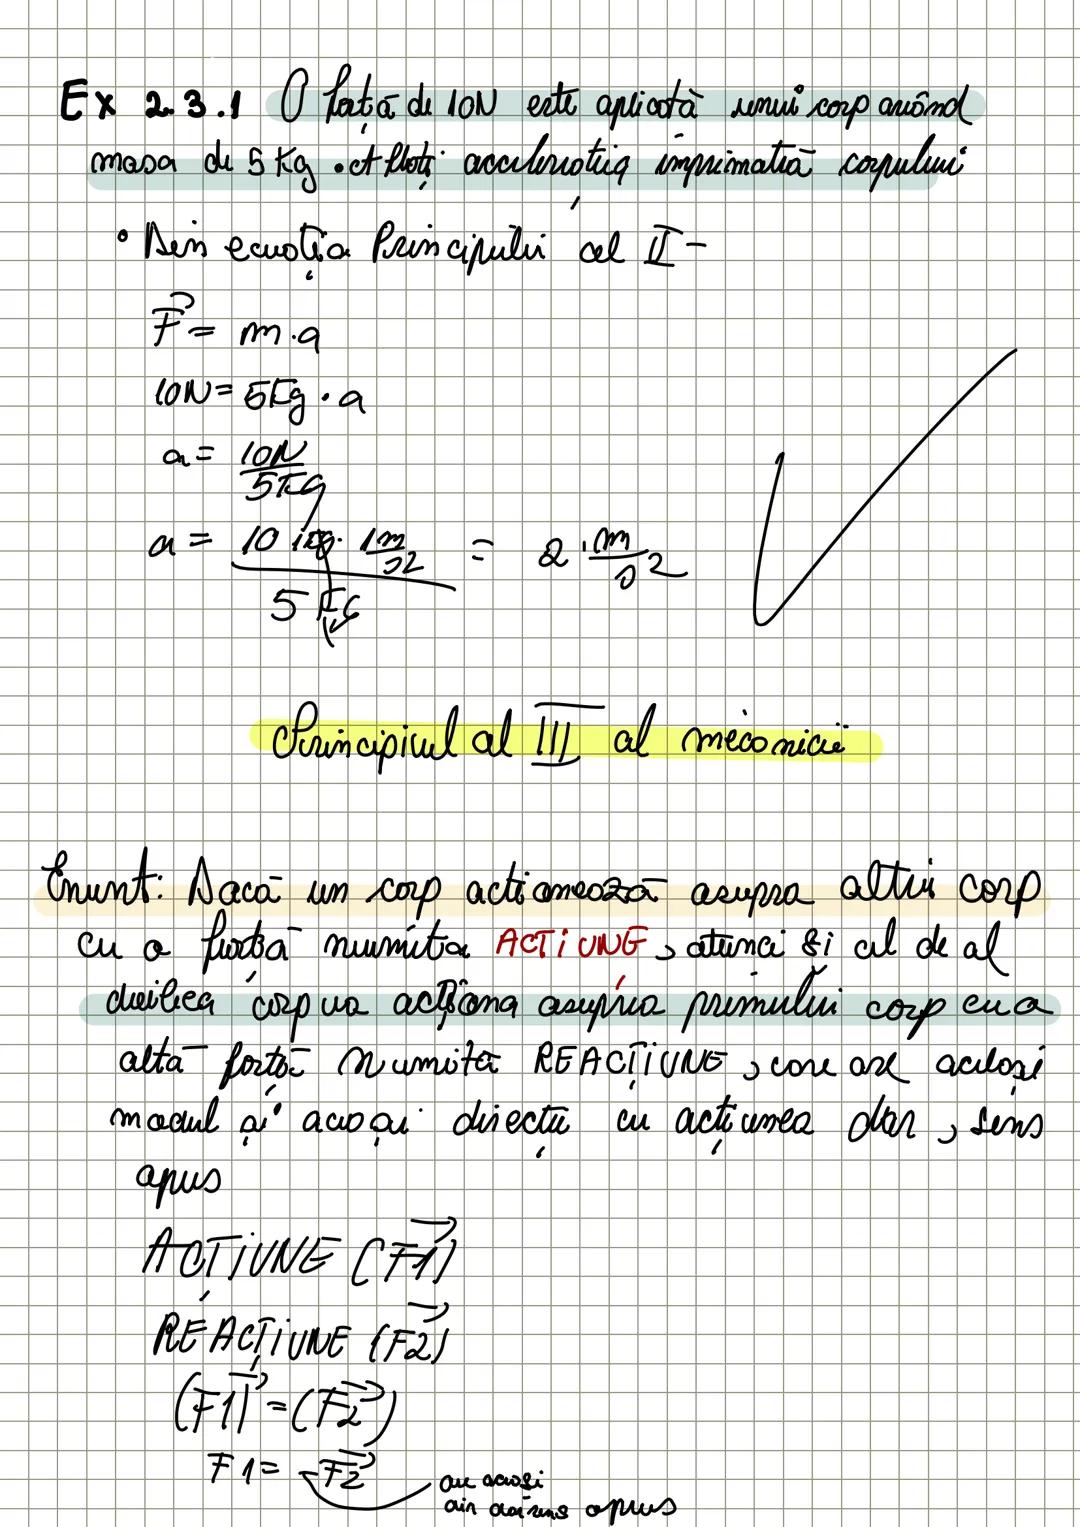 Ex 2.3.1 O forță de 10N este aplicată unui corp având
masa de 5 Kg . Aflați accelerația imprimată corpului
• Din ecuația Principului al II -
F = m.a
10N = 5Kg . a
a = 10N / 5Kg
a = 10 kg . 1 m/s2 / 5 KG = 2 . m/s2
Principiul al III al mecanicii
Enunt: Dacă un corp actionează asupra altui corp
cu o forță numita ACTiUNE, atunci și cel de al
doilea corp va acționa asupra primului corp cu o
altă forță numită REACȚiUNE, care are același
modul și aceași direcție cu acțiunea dar, sens
opus
ACȚiUNE (F1)
REACȚiUNE (F2)
(F1) = (F2)
F1 = -F2
au acași
opus